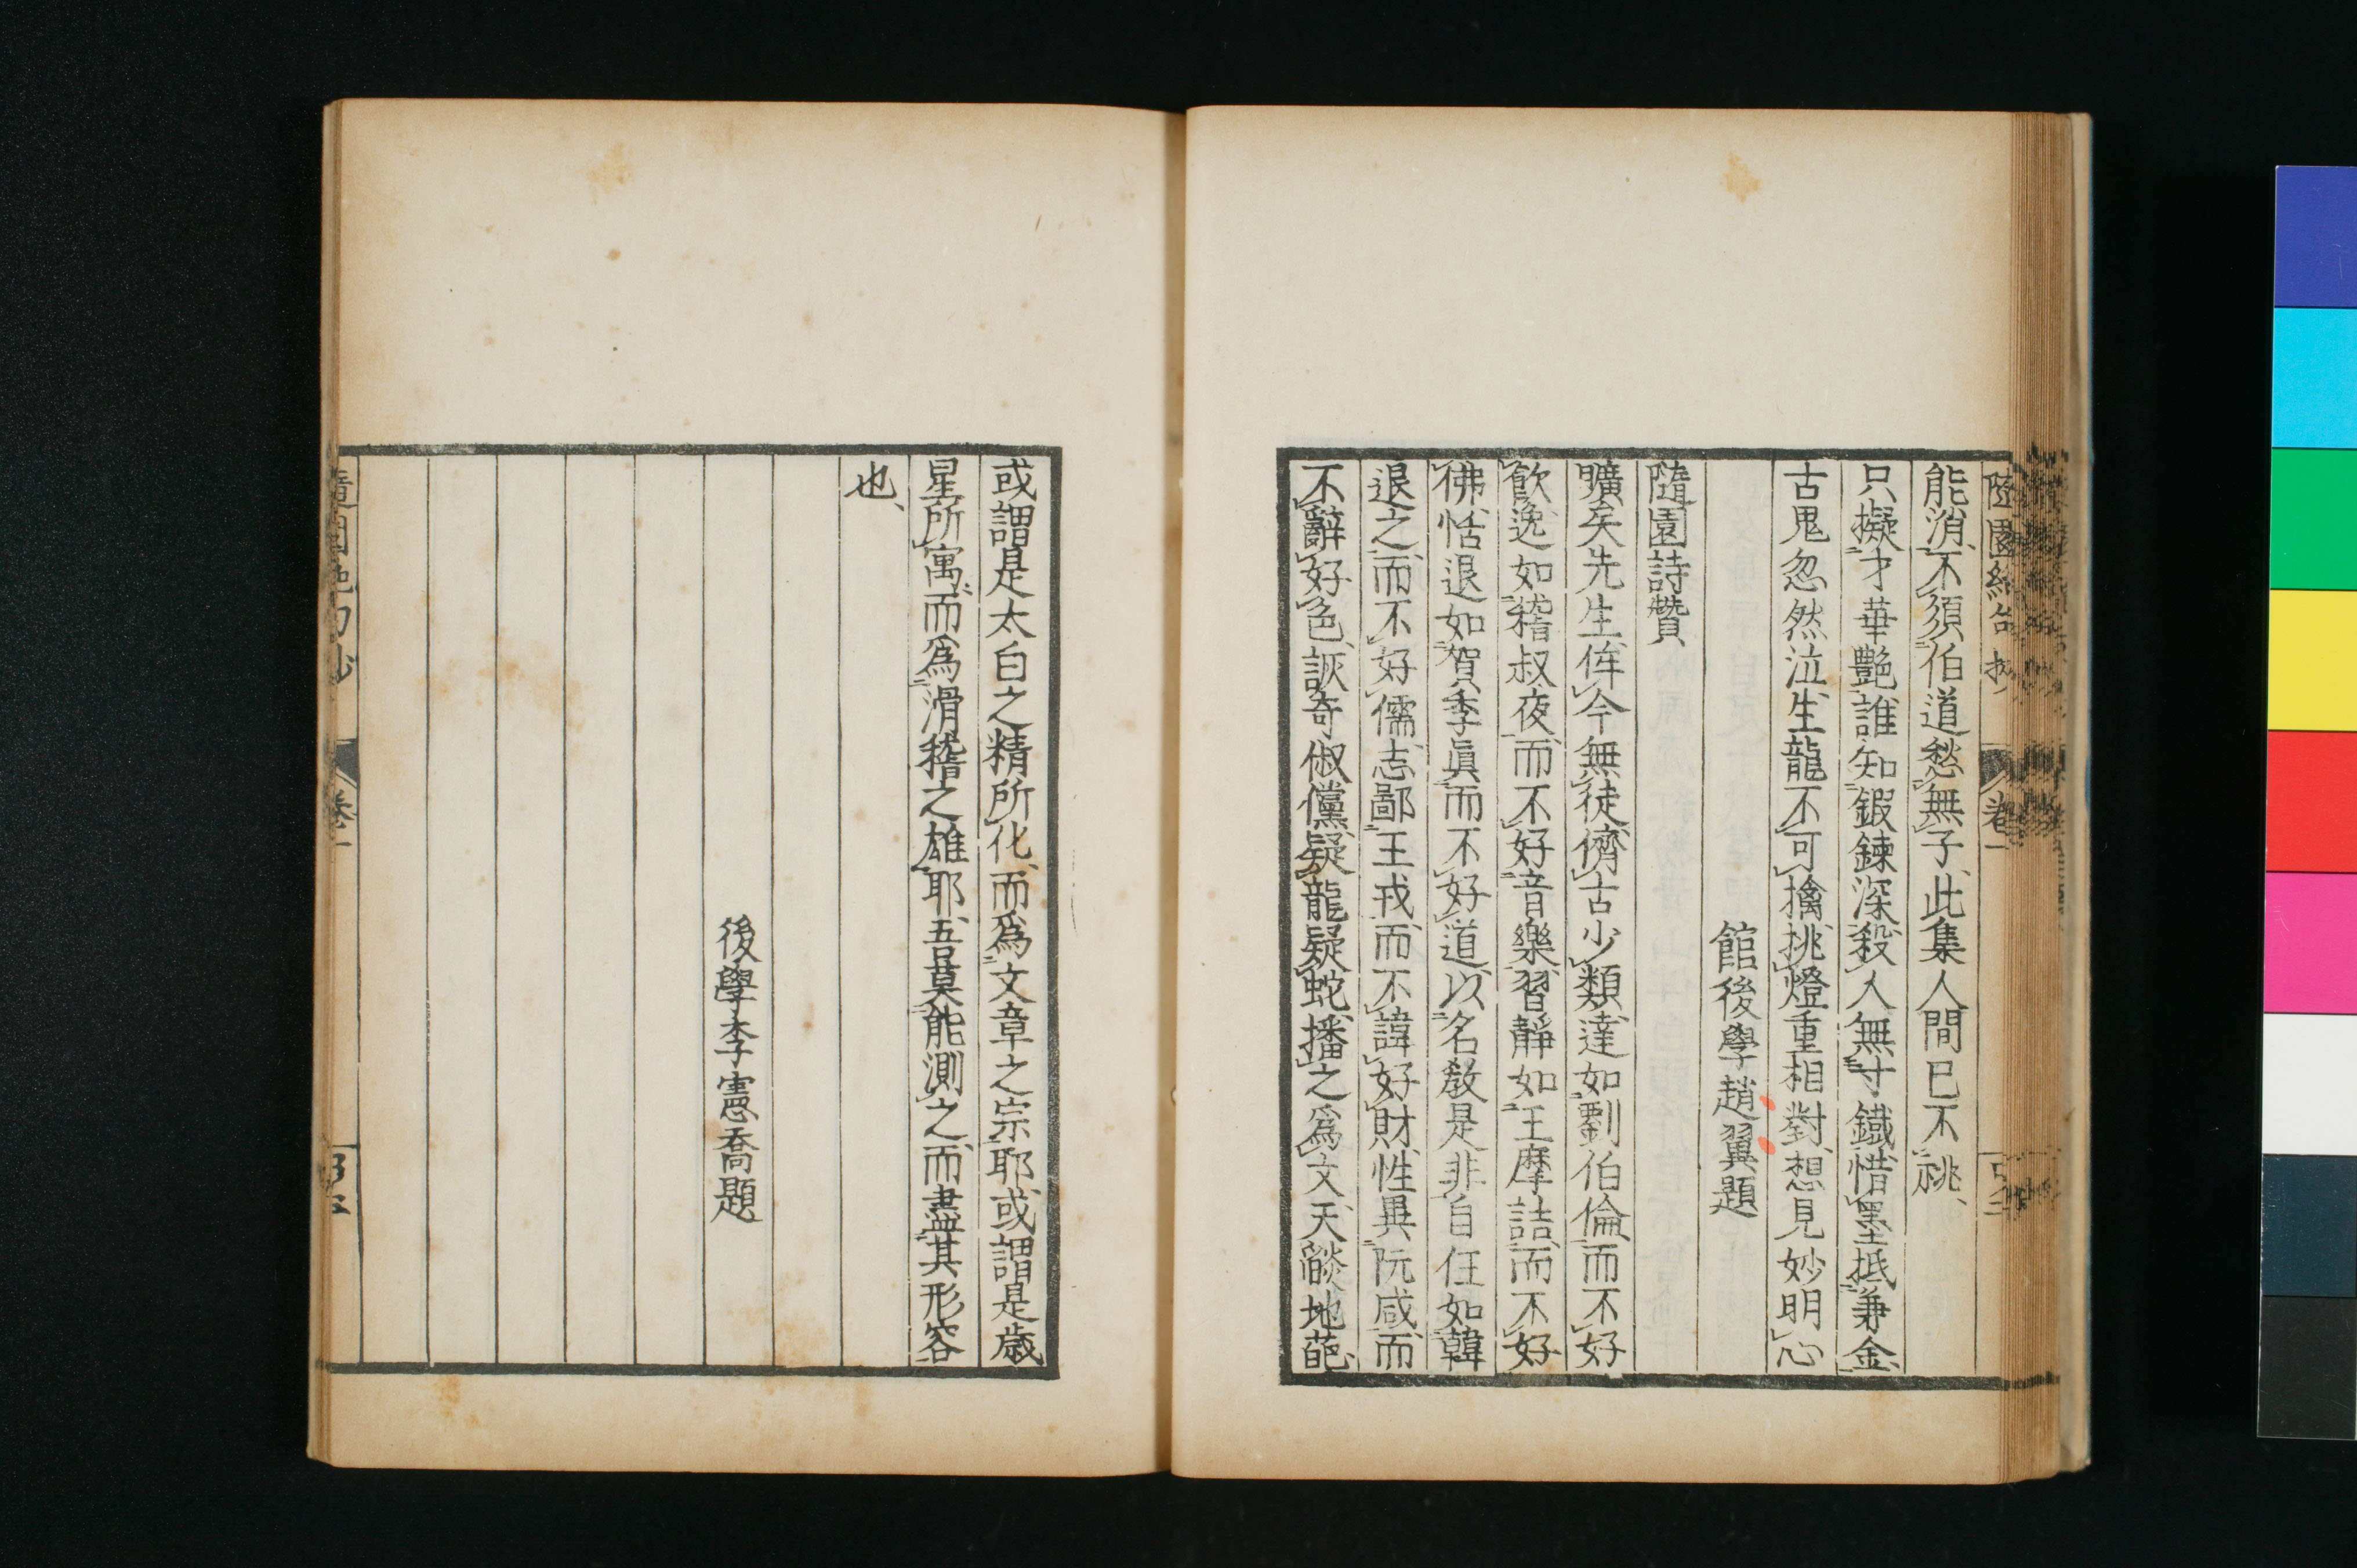 隨園絶句抄 卷一
能消、不須伯道愁無子、此集人間已不祧、
只擬才華艶、誰知鍛錬深、殺人無寸鐵、惜墨抵兼金、
古鬼忽然泣、生龍不可擒、挑燈重相對、想見妙明心
館後學趙翼題
隨園詩贊
曠矣先生、侔今無徒、儕古少類、達如劉伯倫、而不好
飲、逸如嵇叔夜、而不好音樂、習靜如王摩詰、而不好
佛、恬退如賀季眞、而不好道、以名敎是非自任、如韓
退之、而不好儒、志鄙王戎、而不諱好財、性異阮咸、而
不辭好色、詼奇俶儻、疑龍疑蛇、播之爲文、天饏地葩、
或謂是太白之精所化、而爲文章之宗耶、或謂是歳
星所寓、而爲滑稽之雄耶、吾莫能測之、而盡其形容
也、
後學李憲喬題
卷一